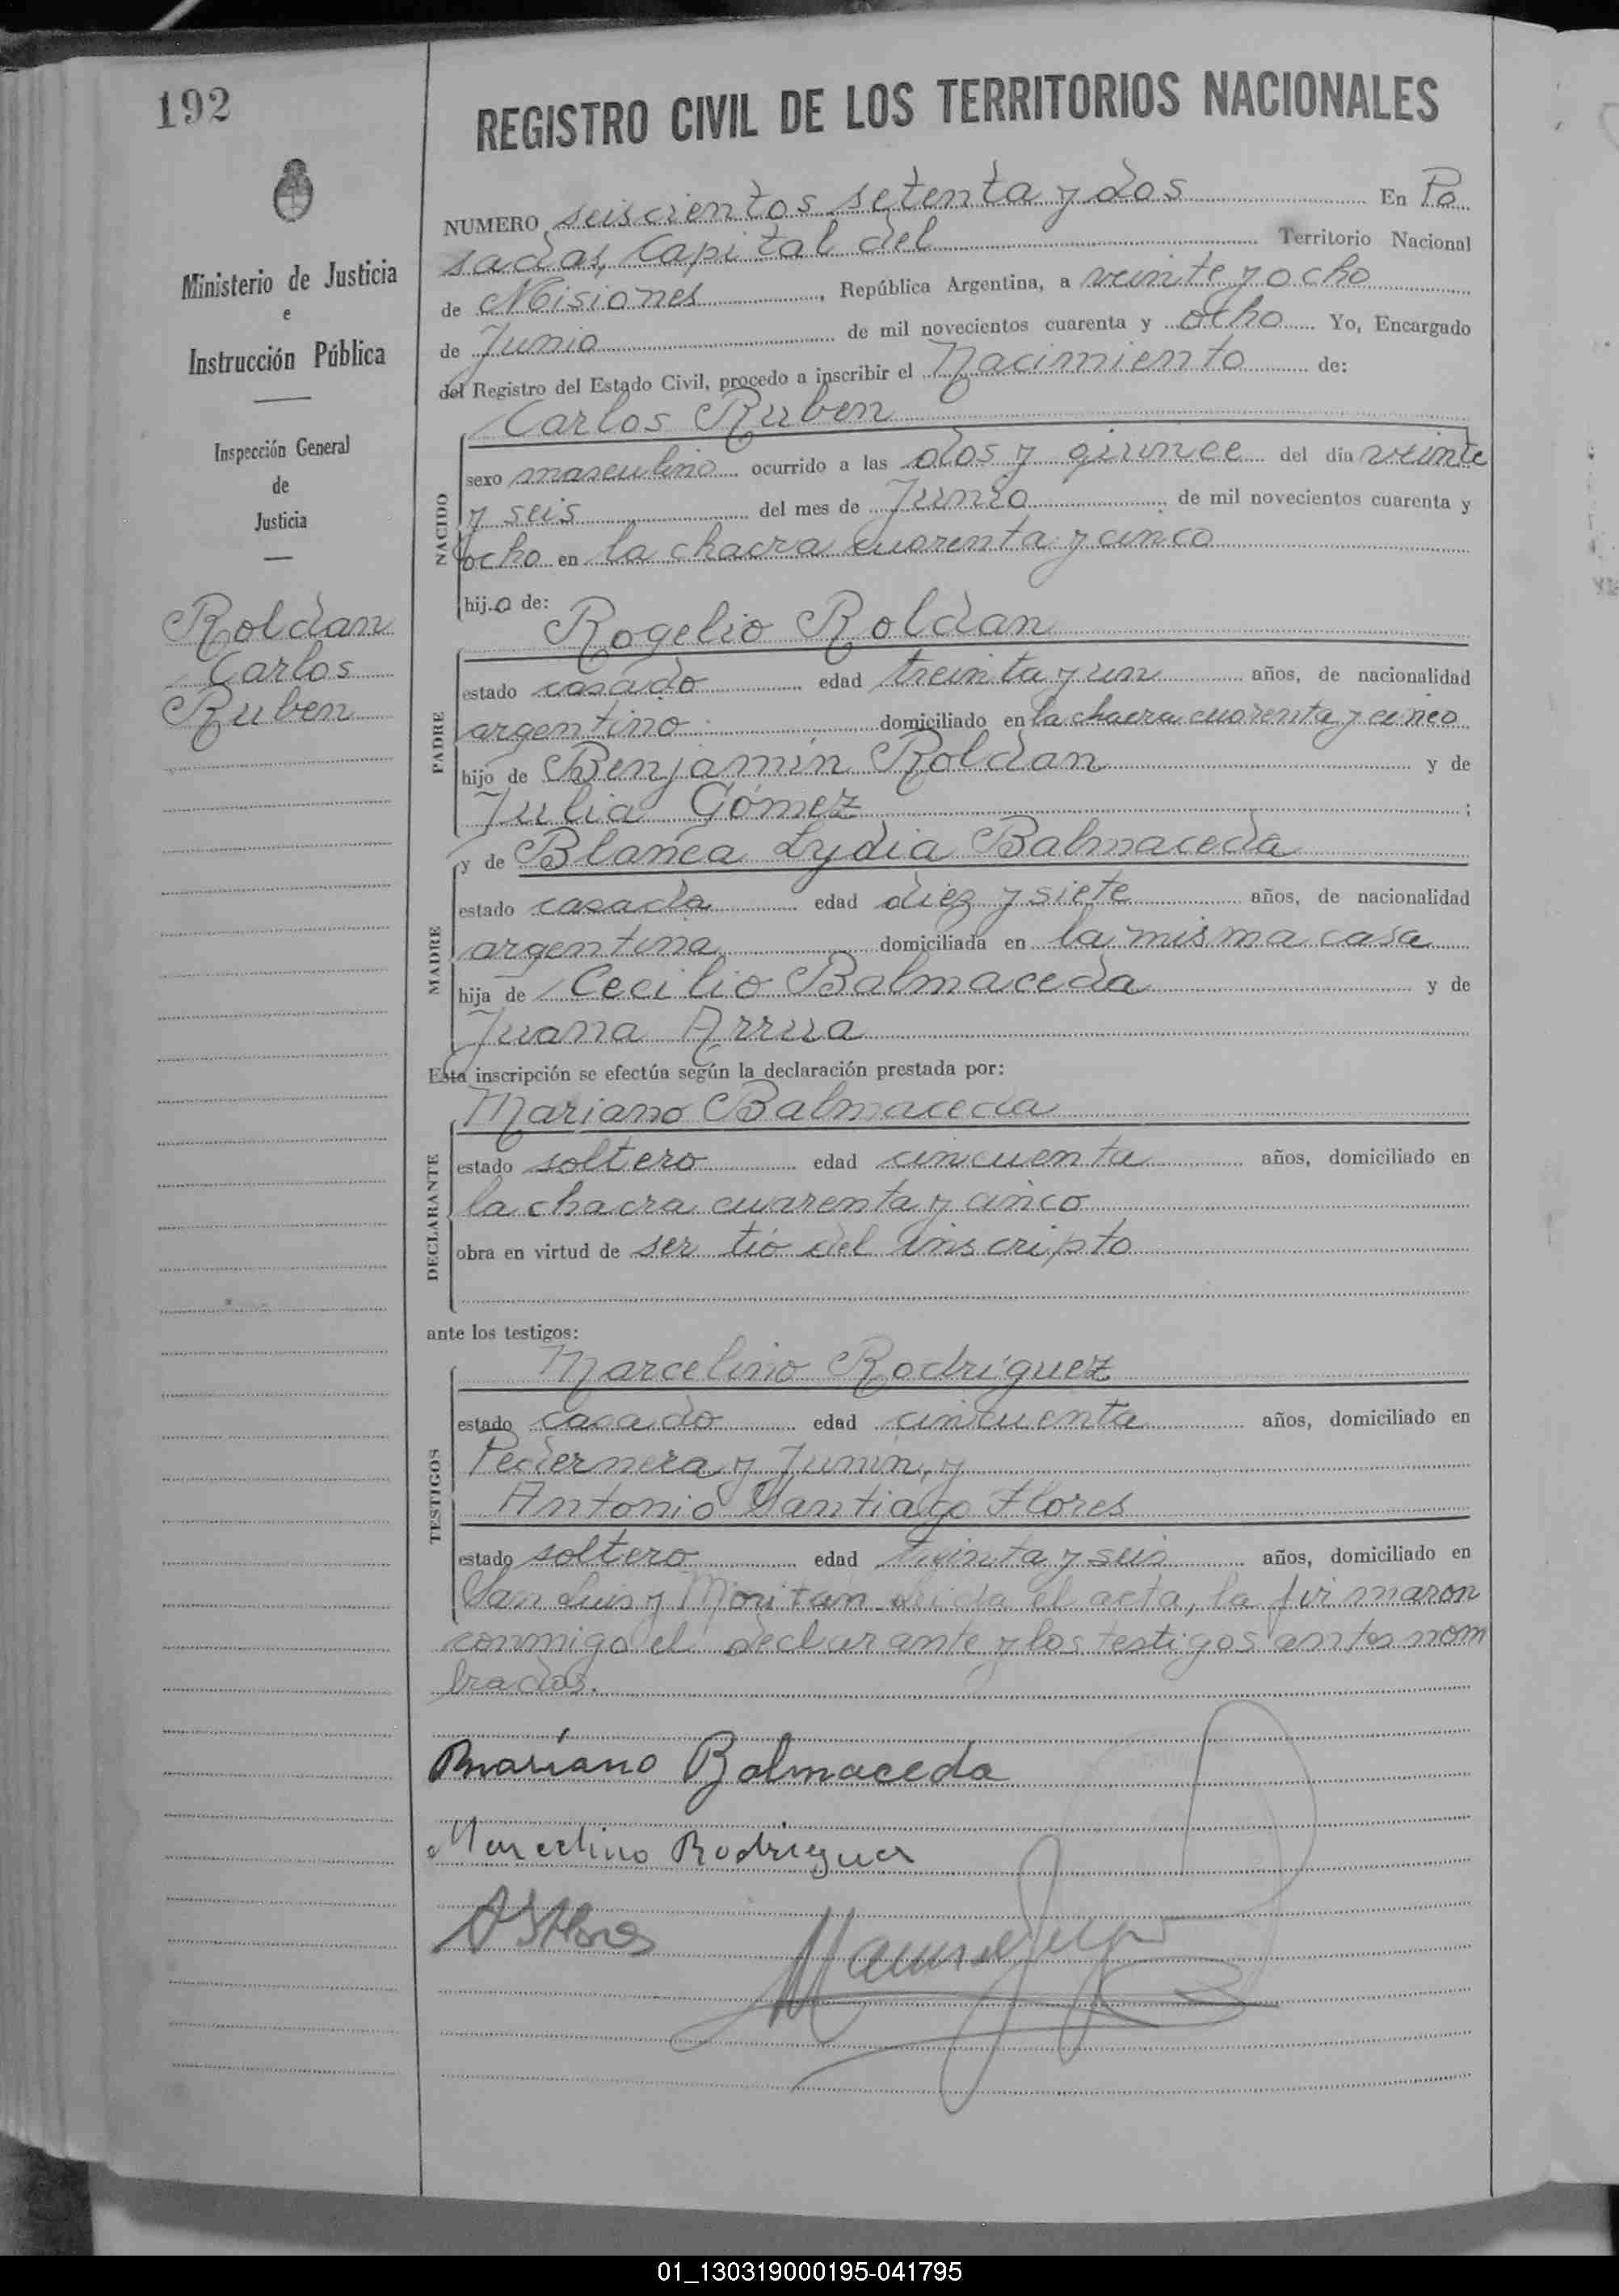 192
REGISTRO CIVIL DE LOS TERRITORIOS NACIONALES
Ministerio de Justicia
e
Instrucción Pública
Inspección General
de
Justicia
Roldan
Carlos
Ruben
NUMERO seiscientos setenta y dos En Po
sadas, Capital del Territorio Nacional
de Misiones, República Argentina, a veinte y ocho
de Junio de mil novecientos cuarenta y ocho Yo, Encargado
del Registro del Estado Civil, procedo a inscribir el Nacimiento de:
NACIDO
Carlos Ruben
sexo masculino ocurrido a las dos y quince del día veinte
y seis del mes de Junio de mil novecientos cuarenta y
ocho en la chacra cuarenta y cinco
hijo de:
PADRE
Rogelio Roldan
estado casado edad treinta y un años, de nacionalidad
argentino domiciliado en la chacra cuarenta y cinco
hijo de Benjamín Roldan y de
Julia Gómez;
MADRE
y de Blanca Lydia Balmaceda
estado casada edad diez y siete años, de nacionalidad
argentina domiciliada en la misma casa
hija de Cecilio Balmaceda y de
Juana Arrua
Esta inscripción se efectúa según la declaración prestada por:
DECLARANTE
Mariano Balmaceda
estado soltero edad cincuenta años, domiciliado en
la chacra cuarenta y cinco
obra en virtud de ser tío del inscripto
ante los testigos:
TESTIGOS
Marcelino Rodríguez
estado casado edad cincuenta años, domiciliado en
Pedernera y Junín, y
Antonio Santiago Flores
estado soltero edad treinta y seis años, domiciliado en
San Luis y Leida el acta, la firmaron
conmigo el declarante y los testigos antes nom
brados.
Mariano Balmaceda
Marcelino Rodriguez
01_130319000195-041795